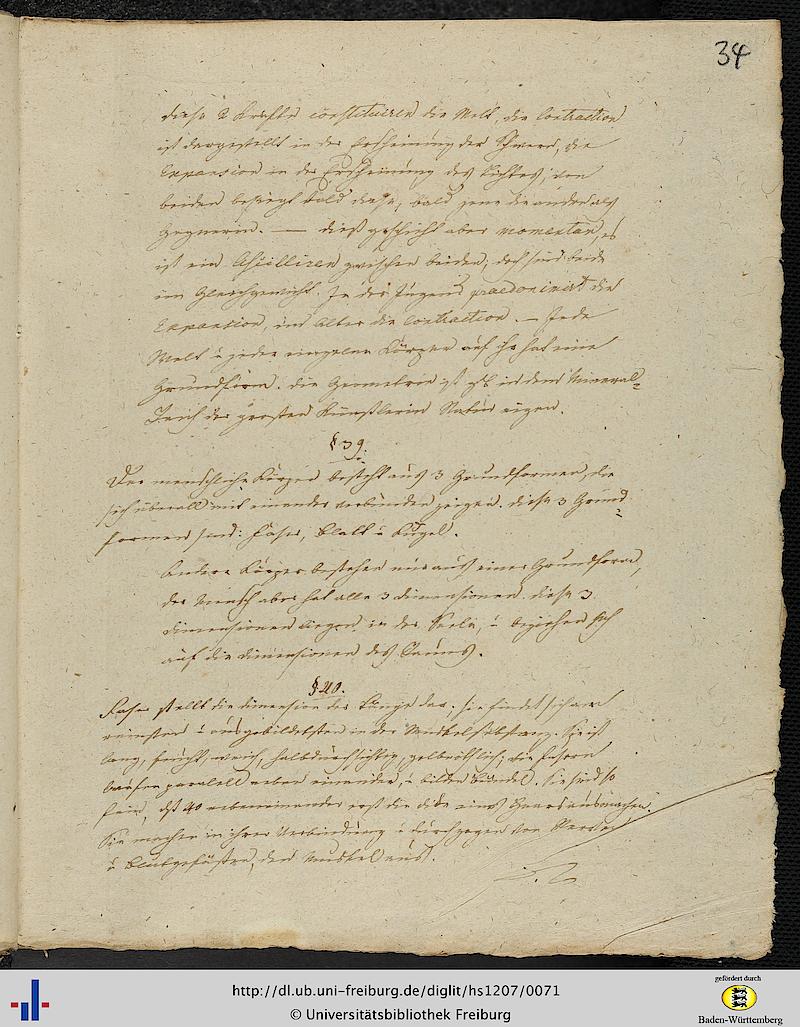 34
diese 2 Kräfte constituiren die Welt, die Contraction
ist dargestellt in der Erscheinung der Schwere, die
Expansion in der Erscheinung des Lichtes; von
beiden besiegt bald diese, bald jene die andere als
Gegnerin. — dieß geschieht aber momentan, es
ist ein Oscilliren zwischen beiden, doch sind beide
im Gleichgewicht. In der Jugend praedominirt die
Expansion, im Alter die Contraction. — Jede
Welt u jeder einzelne Körper auf ihr hat eine
Grundform. die Geometrie ist in dem Mineral-
Reich der großen Künstlerin Natur eigen.
§ 39.
Der menschliche Körper besteht aus 3 Grundformen, die
sich überall mit einander verbunden zeigen. diese 3 Grund-
formen sind: Faser, Blatt u Kugel.
Andere Körper bestehen nur aus einer Grundform,
der Mensch aber hat alle 3 dimensionen. diese 3
dimensionen liegen in der Seele, u beziehen sich
auf die dimensionen des Raumes.
§ 40.
Faser stellt die dimension der Länge dar; sie findet sich am
reinsten u ausgebildetsten in der Muskelsubstanz. Sie ist
lang, feucht, weich, halbdurchsichtig, gelbröthlich; die Fasern
laufen paralell neben einander, u bilden Bündel. Sie sind so
fein, dß 40 nebeneinander erst die dike eines Haares ausmachen.
Sie machen in ihrer Verbindung u durchzogen von Nerven
u Blutgefäßen, den Muskel aus.
http://dl.ub.uni-freiburg.de/diglit/hs1207/0071
© Universitätsbibliothek Freiburg
gefördert durch
Baden-Württemberg